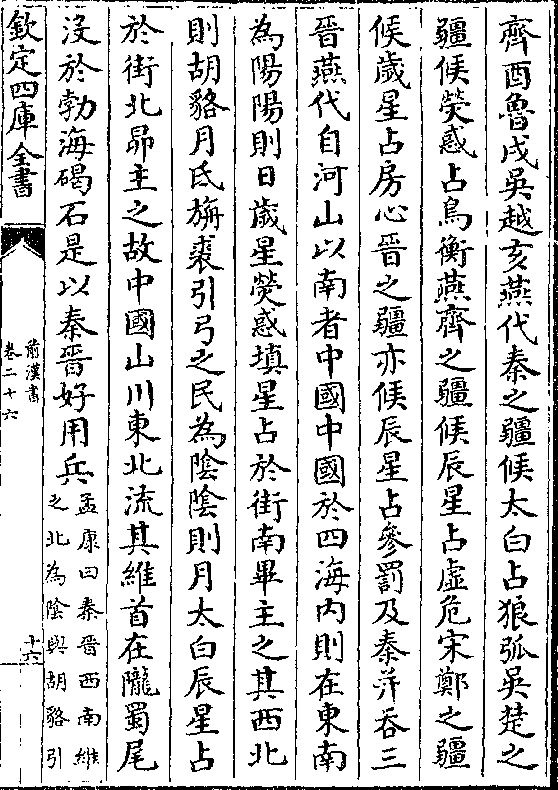 齊酉魯戌吳越亥燕代秦之疆候太白占狼弧吳楚之
疆候熒惑占烏衡燕齊之疆候辰星占虛危宋鄭之疆
候歲星占房心晉之疆亦候辰星占參罰及秦并吞三
晉燕代自河山以南者中國中國於四海内則在東南
為陽陽則日歲星熒惑填星占於街南畢主之其西北
則胡貉月氐旃裘引弓之民為陰陰則月太白辰星占
於街北昴主之故中國山川東北流其維首在隴蜀尾
沒於勃海碣石是以秦晉好用兵
孟康曰秦晉西南維
之北為陰與胡貉引
欽定四庫全書
前漢書
卷二十六
十六